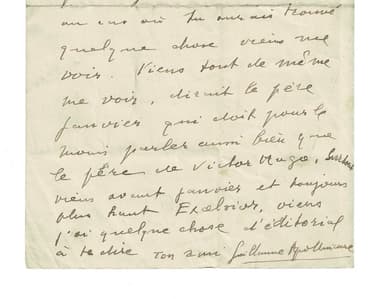 au cas où tu aurais trouvé
quelque chose viens me
voir. Viens tout de même
me voir, dirait le père
Janvier qui doit pour le
moins parler aussi bien que
le père de Victor Hugo, Surtout
viens avant janvier et toujours
plus haut Excelsior, viens
j'ai quelque chose d'éditorial
à te dire ton ami Guillaume Apollinaire